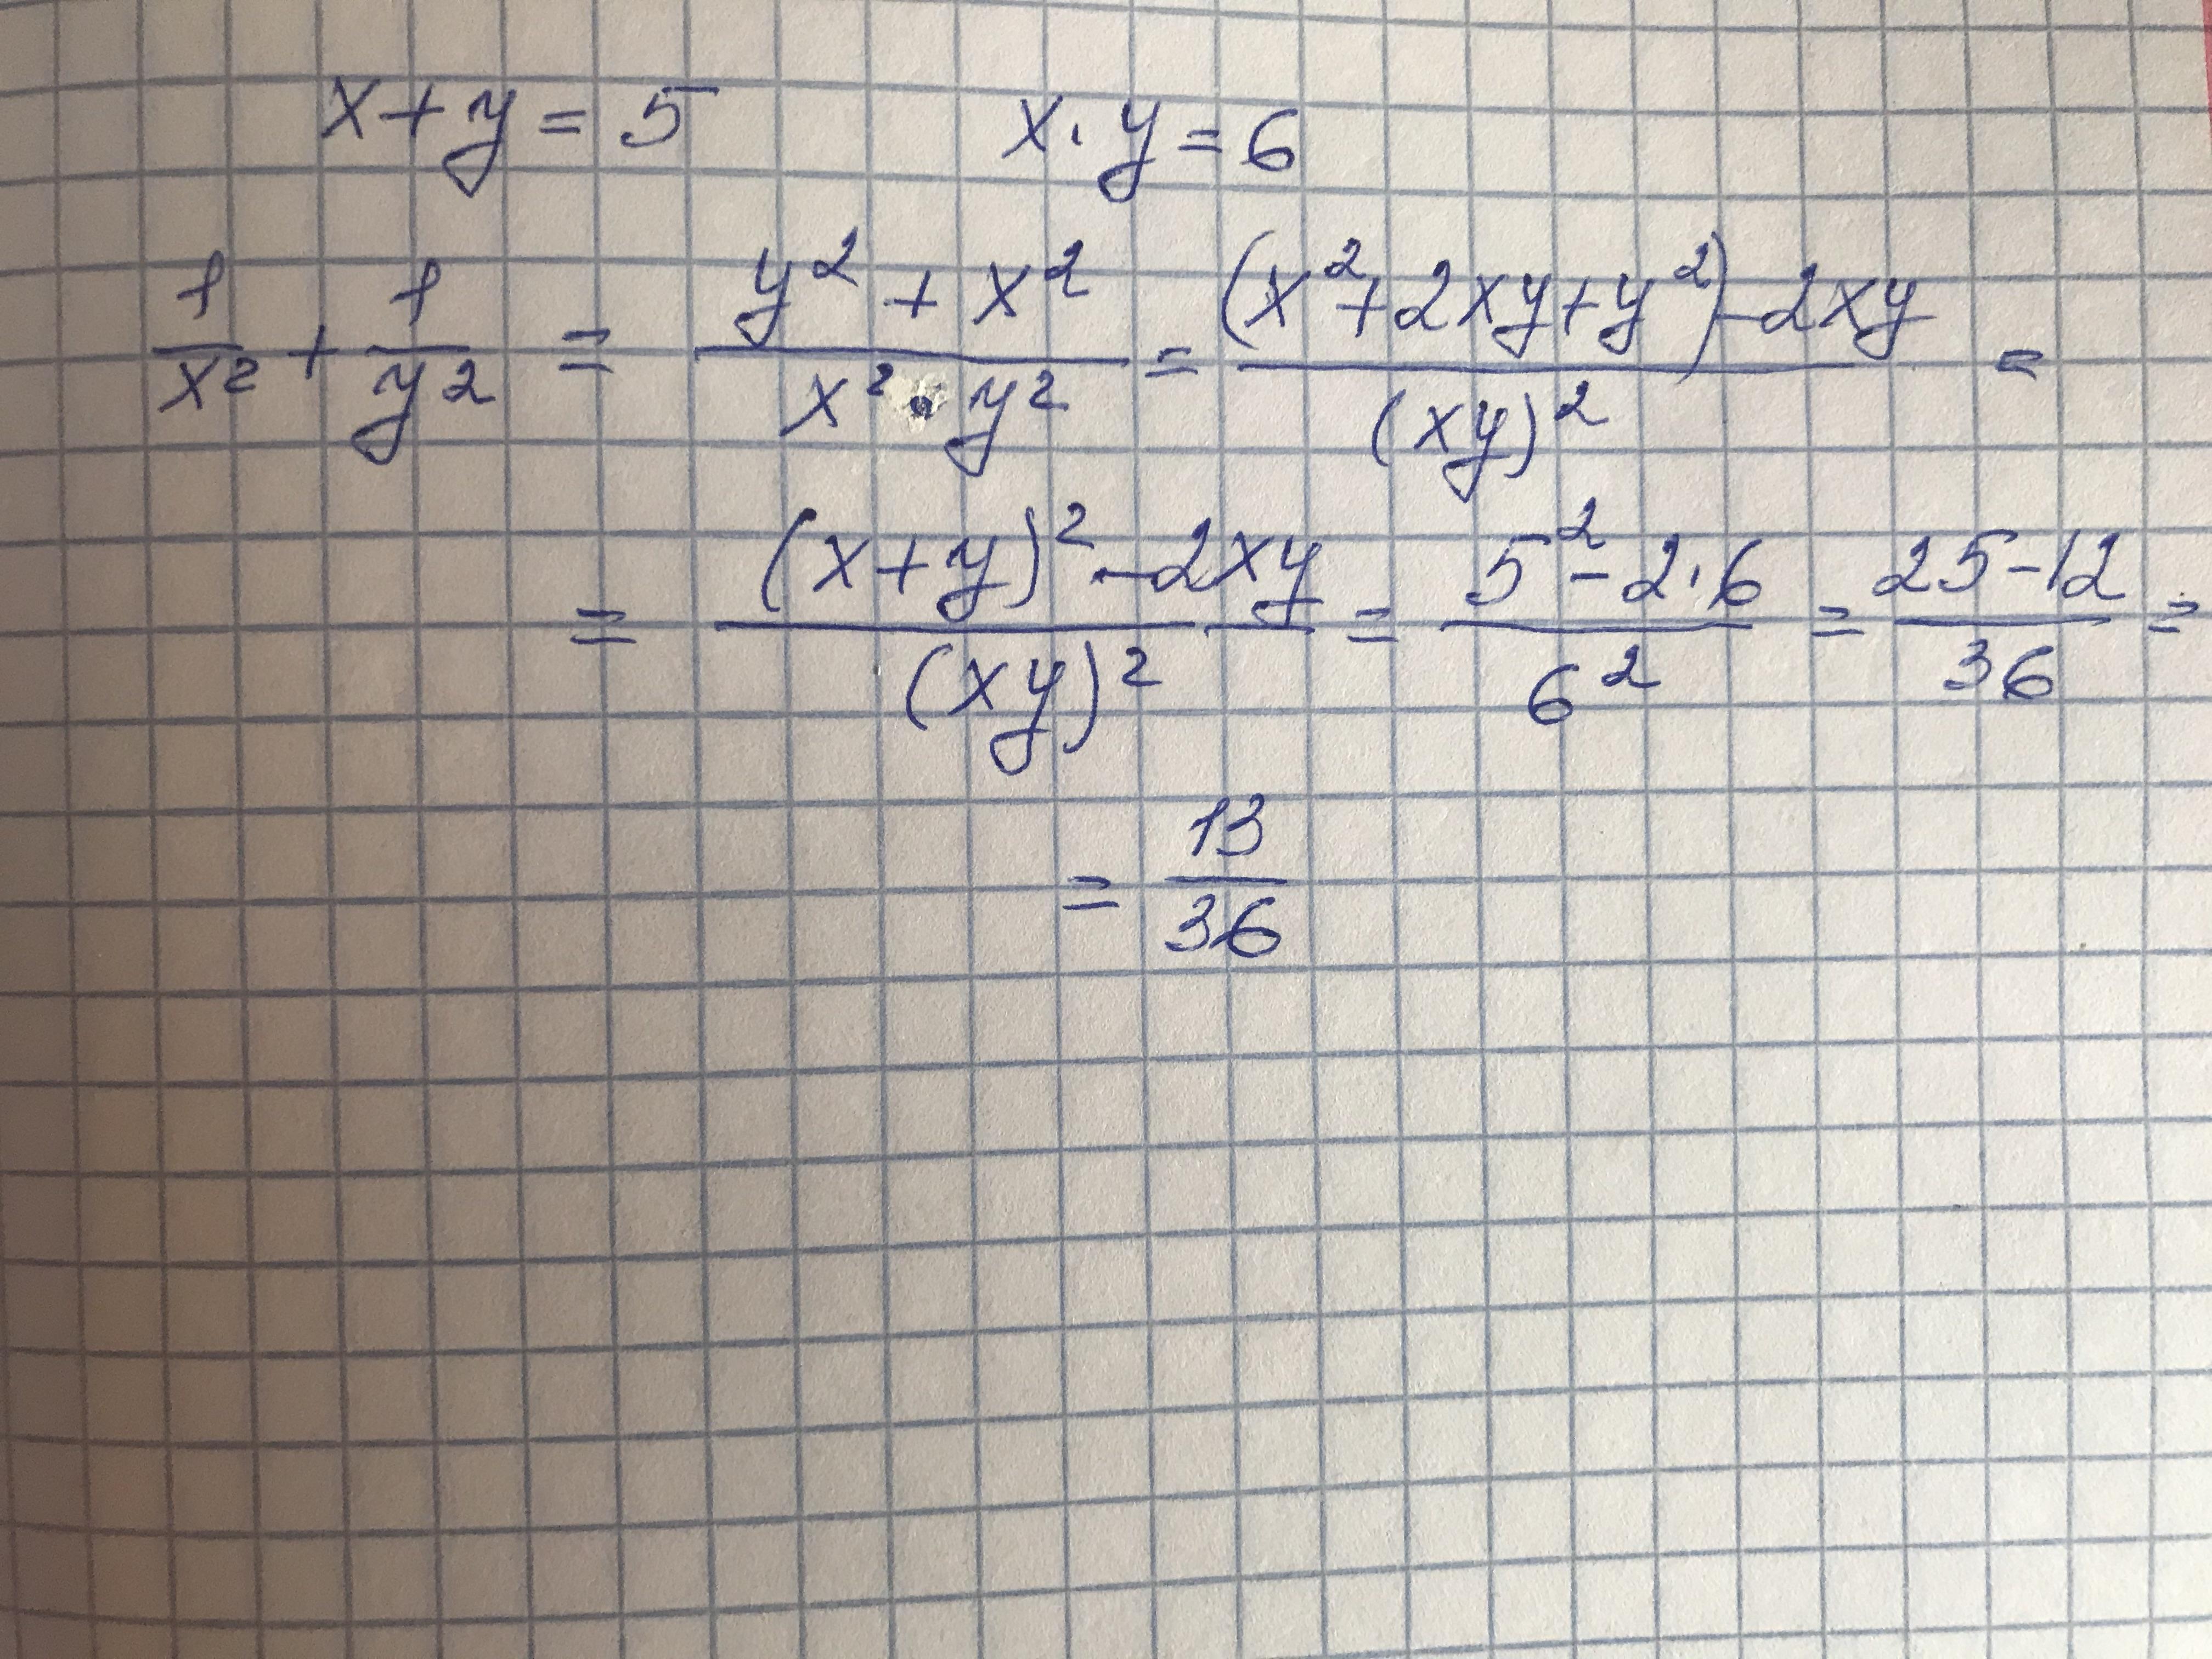 x+y=5 x·y=6
1/x² + 1/y² = (y²+x²)/(x²·y²) = ((x²+2xy+y²)-2xy)/(xy)² =
= ((x+y)²-2xy)/(xy)² = (5²-2·6)/6² = (25-12)/36 =
= 13/36